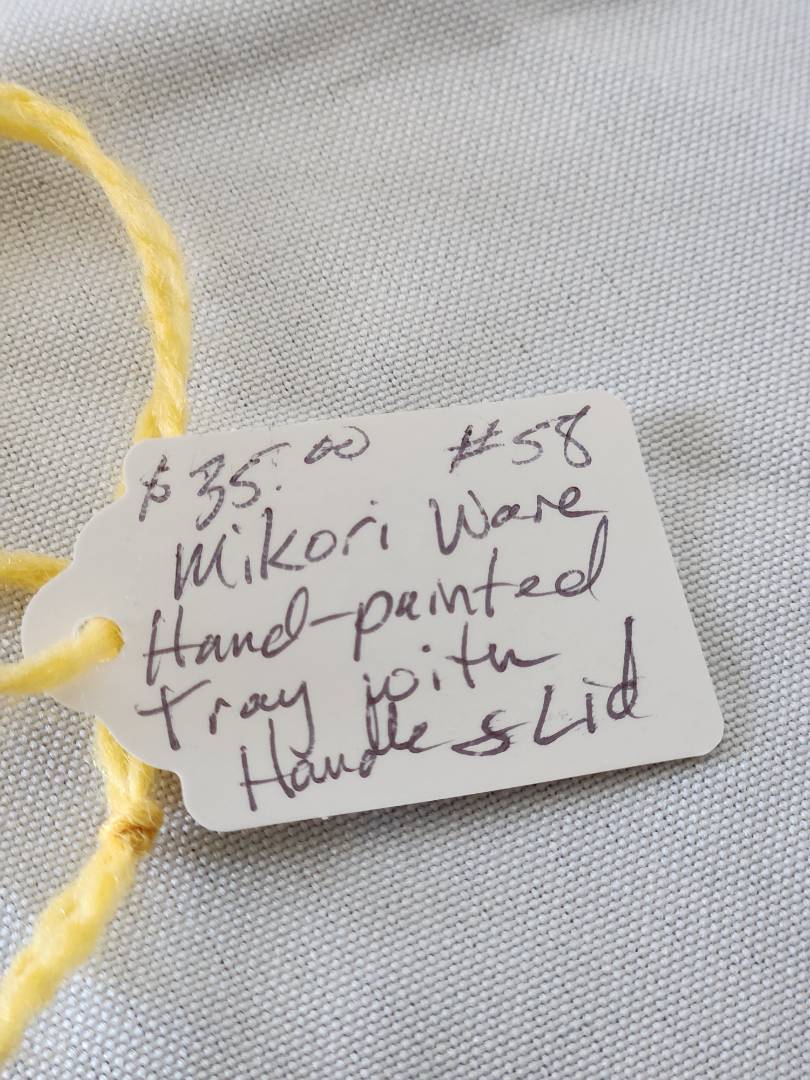 $35.00 #58
Mikori Ware
Hand-painted
Tray with
Handle & Lid